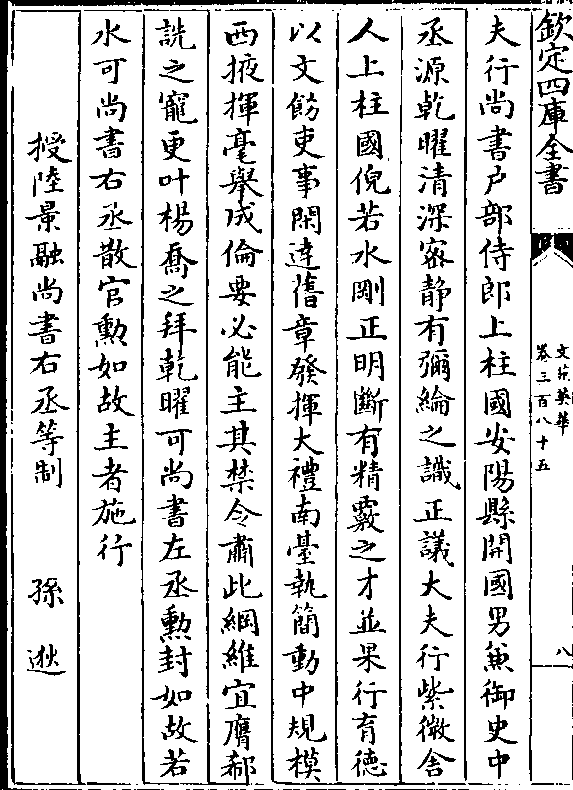 欽定四庫全書
文苑英華
卷三百八十五
八
夫行尚書户部侍郎上柱國安陽縣開國男兼御史中
丞源乾曜清深宻靜有彌綸之識正議大夫行紫微舍
人上柱國倪若水剛正明斷有精覈之才並果行育徳
以文飭吏事閑達舊章發揮大禮南臺執簡動中規模
西掖揮毫舉成倫要必能主其禁令肅此綱維宜膺郗
詵之寵更叶楊喬之拜乾曜可尚書左丞勲封如故若
水可尚書右丞散官勲如故主者施行
授陸景融尚書右丞等制 孫逖